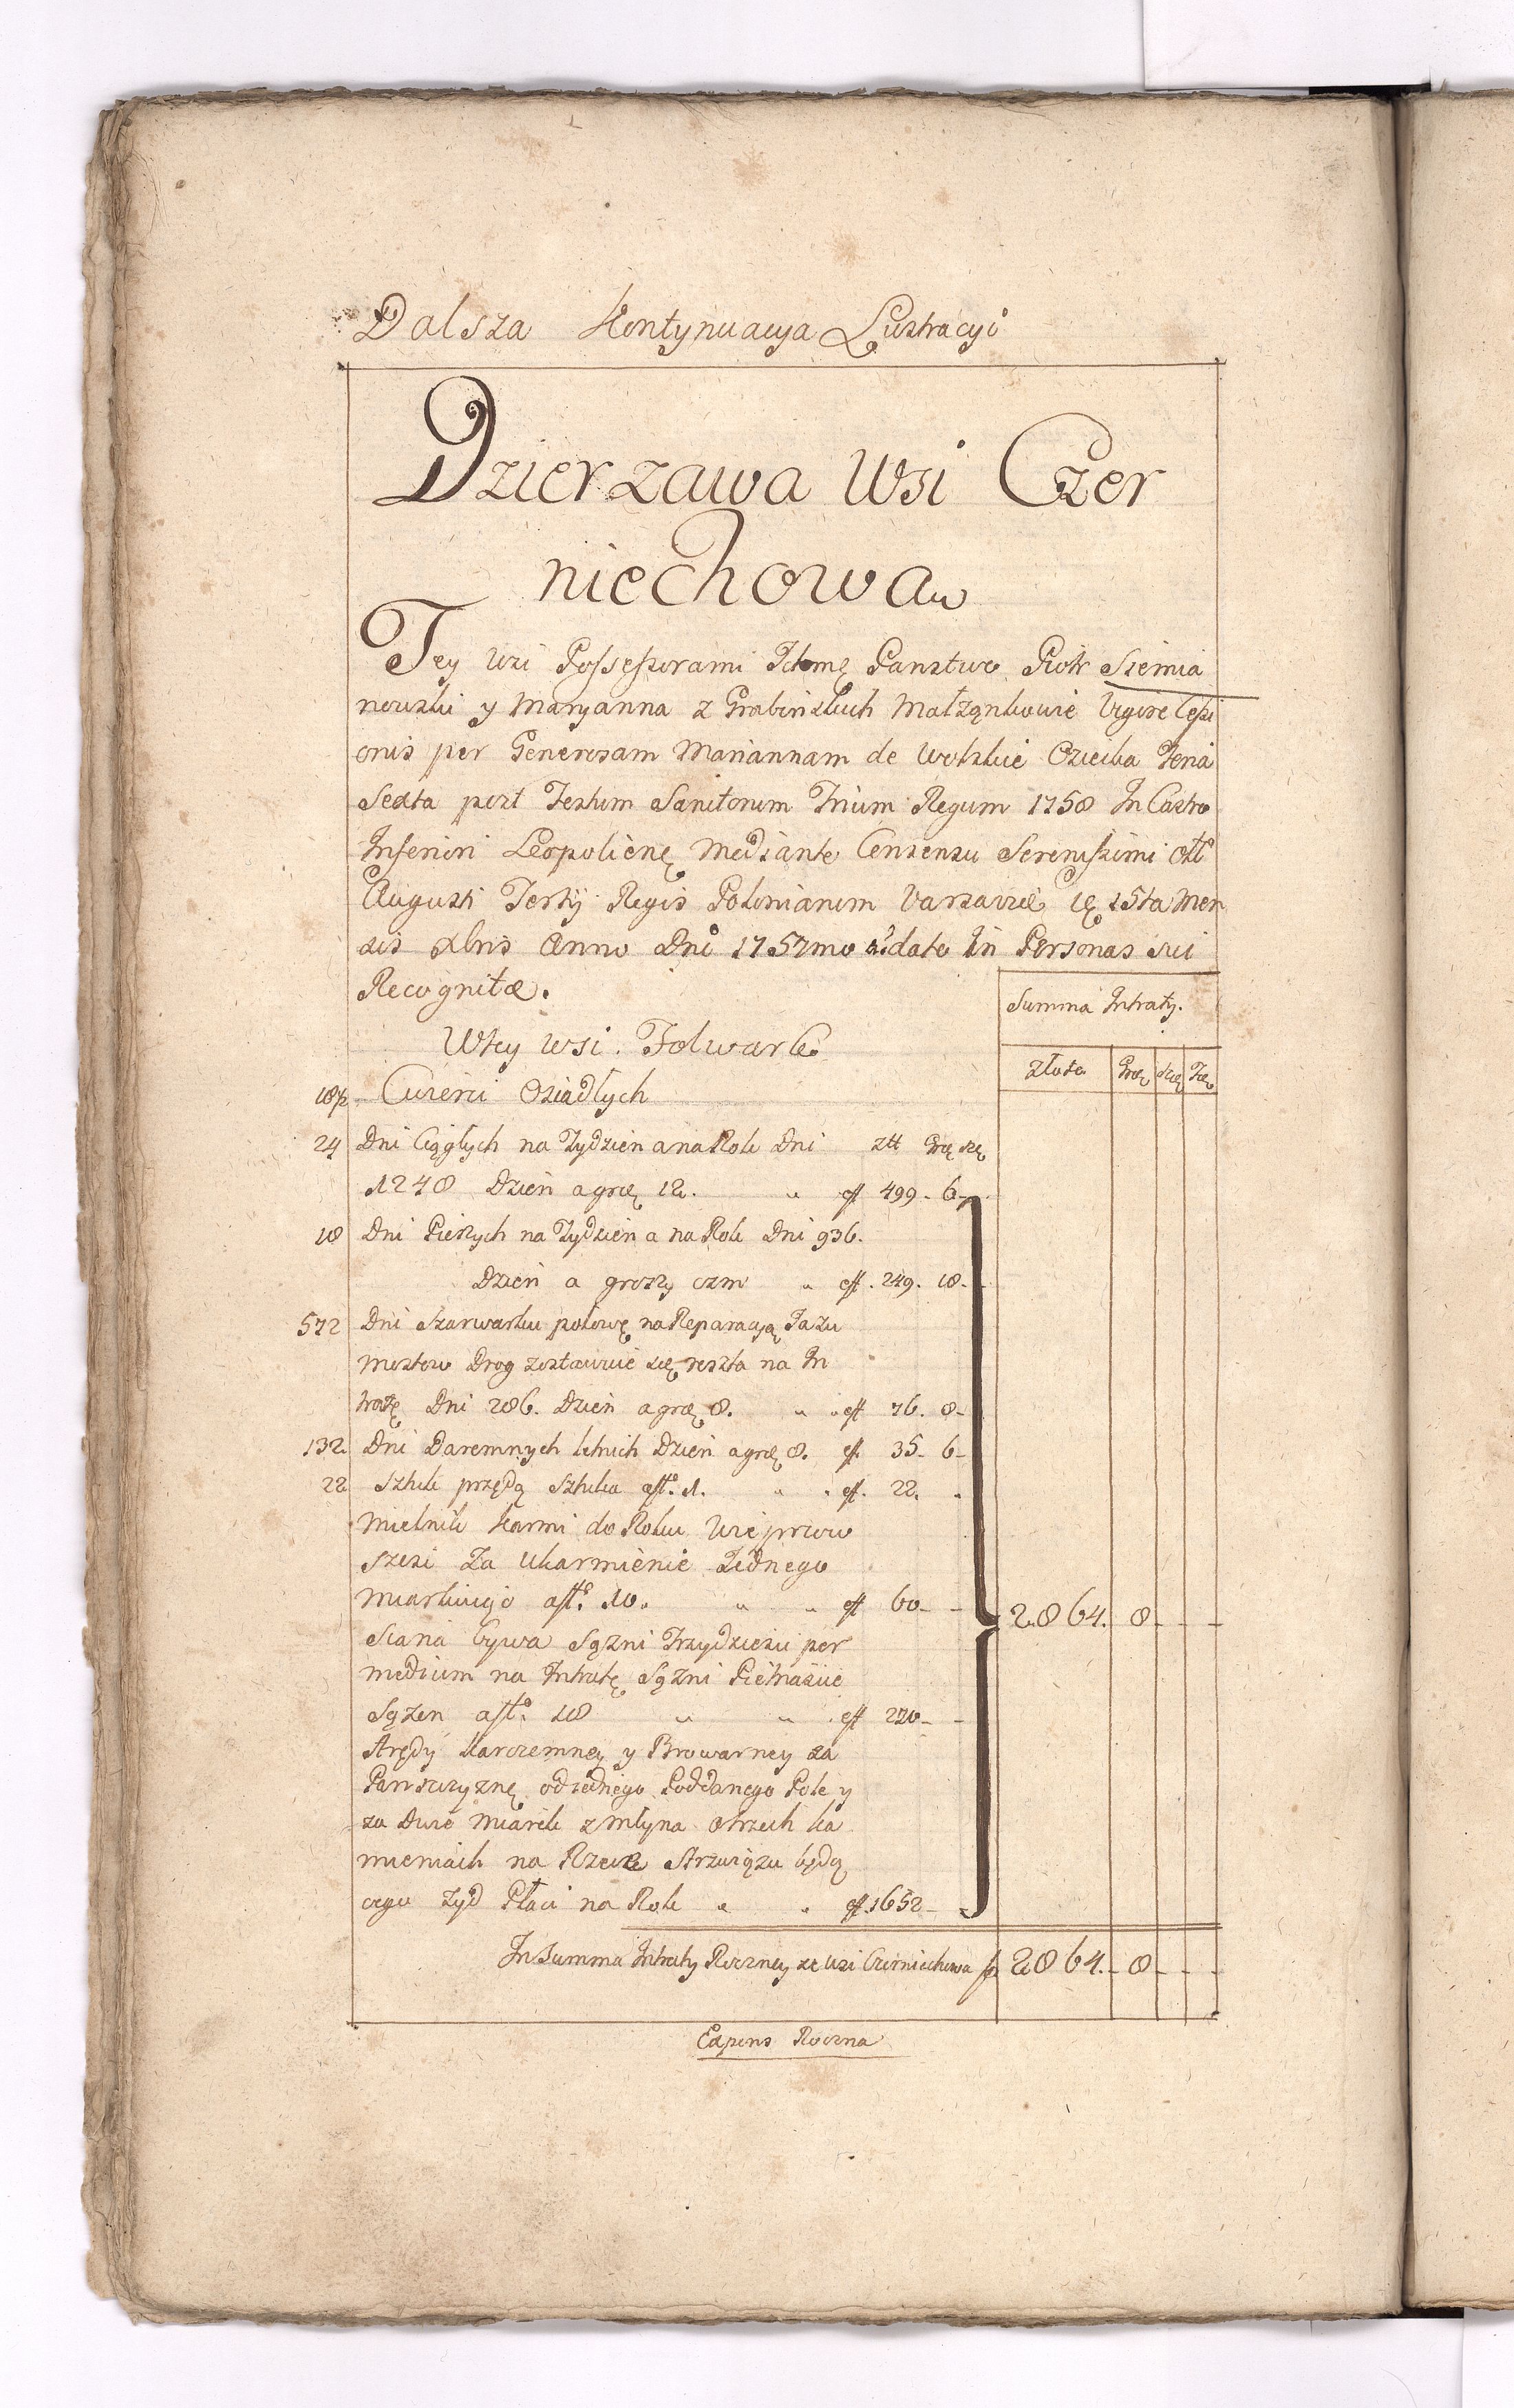 Dalsza Kontynuacya Lustracyi
Dzierzawa Wsi Czer
niechowa
Tey wsi Possessorami Ichmę Panstwo Piotr Siemia
nowski y Maryanna z Grabinskich Małząnkowie Vigore Cessi
onis per Generosam Mariannam de Wolskie Feria
Sexta post Festum Sanctorum Trium Regum 1758 In Castro
Inferiori Leopoliensę Mediante Consensu Serenissimi
Augusti Tertij Regis Poloniarum Varsaviæ 15ta Men
sis Xbris Anno Dni 1757mo dato In Personas sui
Recognitæ.
Summa Intraty.
Wtey wsi Folwark
Złote Grō Szę
Cwierci Osiadłych
24 Dni Ciągłych na Tydzien a na Rok Dni złt Grō szę
1248 Dzien a groę 12. " eff 499. 6
18 Dni Pieszych na Tydzien a na Rok Dni 936.
Dzien a groszy osm " eff. 249. 18.
572 Dni Szarwarku połowę na Reparacyą Jazu
mostow Drog zostawuie się reszta na In
tratę Dni 286. Dzien a groę 8. " eff 76. 8
132 Dni Daremnych letnich Dzien a groę 8. eff. 35. 6
22 Sztuk przędą Sztuka afł. 1. " eff. 22.
Mielnik karmi do Roku Wieprzow
szesc Za Ukarmienie Jednego
afł. 10. " " eff 60
2864. 8
Siana bywa Sązni Trzydziesci per
medium na Intratę Sązni Pietnascie
Sązen afł. 18 " " eff 270
Arędy Karczemney y Browarney za
Panszczyznę od iednego Poddanego Pole y
za Dwie Miarek z Młyna o trzech ka
mieniach na Rzece Strwiązu będą
cego Zyd Płaci na Rok " " eff. 1652
In Summa Intraty Roczney ze wsi Czerniechowa f 2864. 8
Expens Roczna